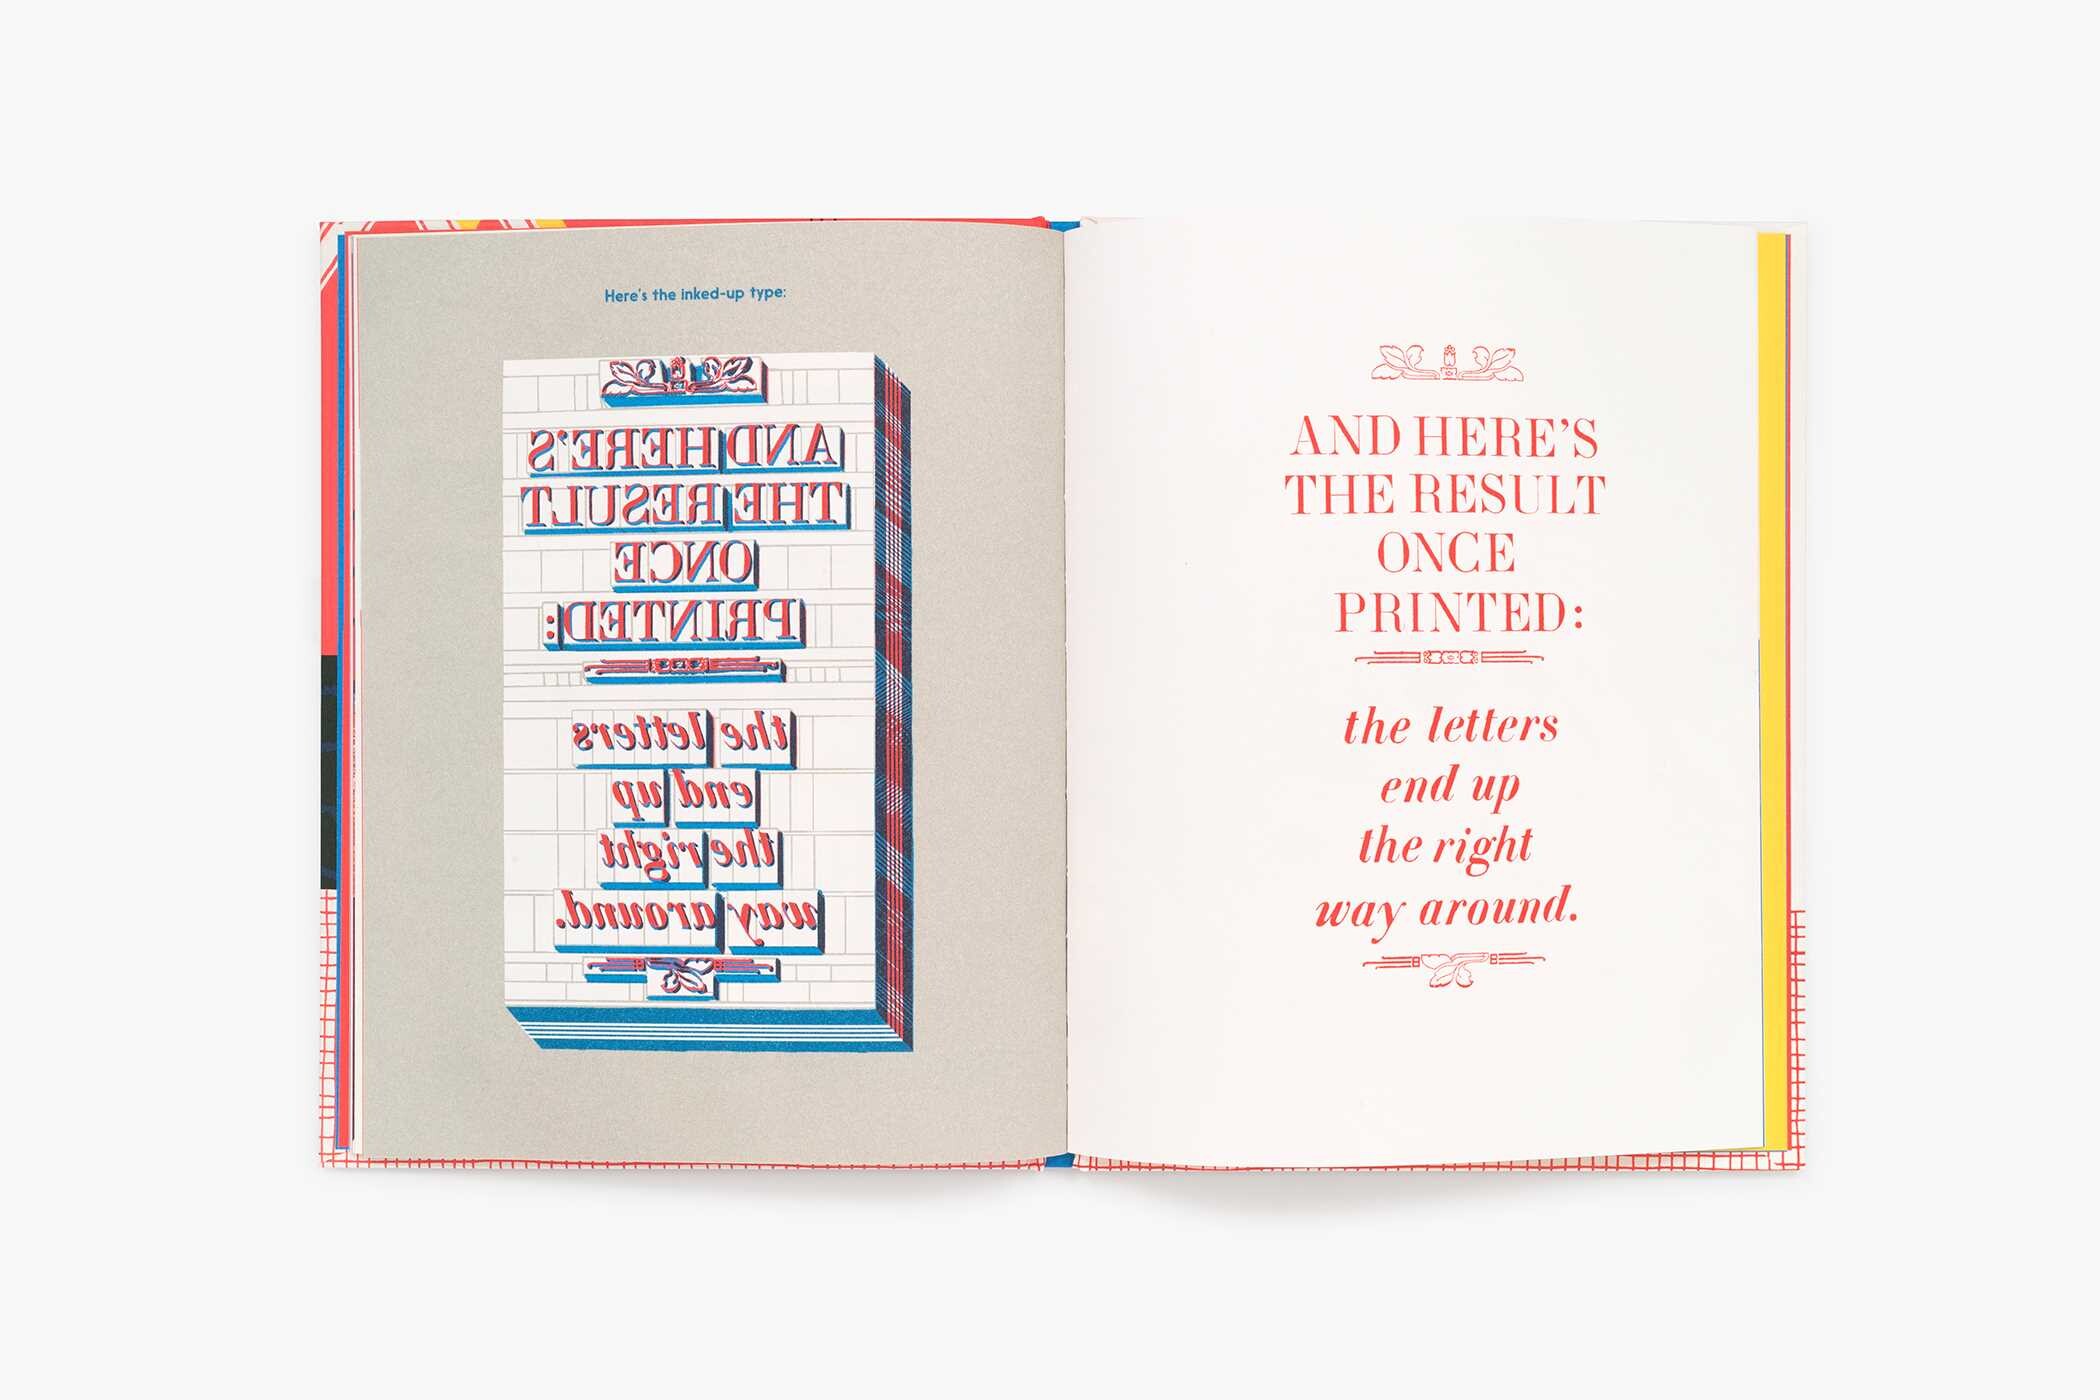 Here's the inked-up type:
AND HERE'S
THE RESULT
ONCE
PRINTED:
the letters
end up
the right
way around.
AND HERE'S
THE RESULT
ONCE
PRINTED:
the letters
end up
the right
way around.